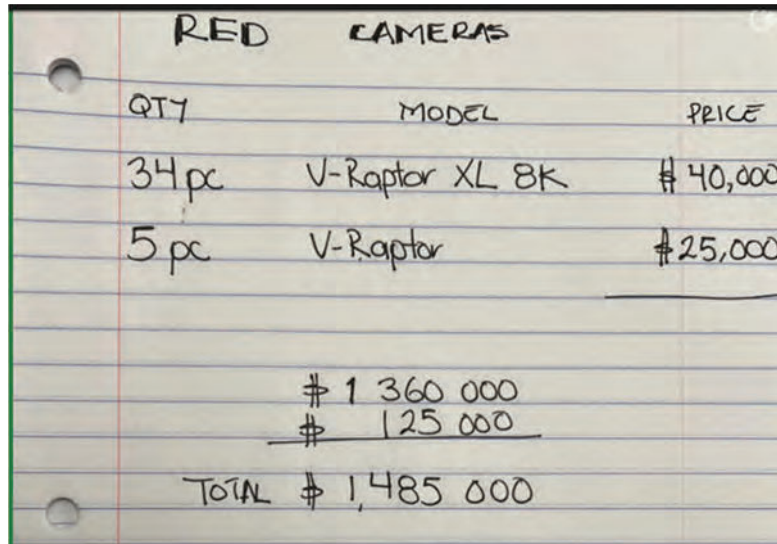 RED CAMERAS
QTY MODEL PRICE
34 pc V-Raptor XL 8K $ 40,000
5 pc V-Raptor $25,000
$ 1 360 000
$ 125 000
TOTAL $ 1,485 000